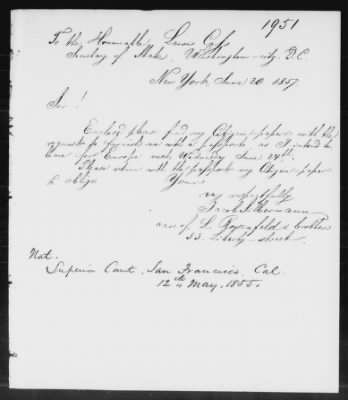 1951
To the Honourable Lewis Cass
Secretary of State, Washington-city D.C.
New York June 20. 1857.
Sir!
Enclosed please find my Citizen-paper with the
request to furnish me with a passport, as I intend to
leave for Europe next Wednesday June 24th.
Please return with the passport my Citizen-paper
& oblige Yours
very respectfully
Herrmann
care of S. Rosenfeld & brother
53. Liberty street.
Nat.
Superior Court, San Francisco, Cal.
12th May. 1855.